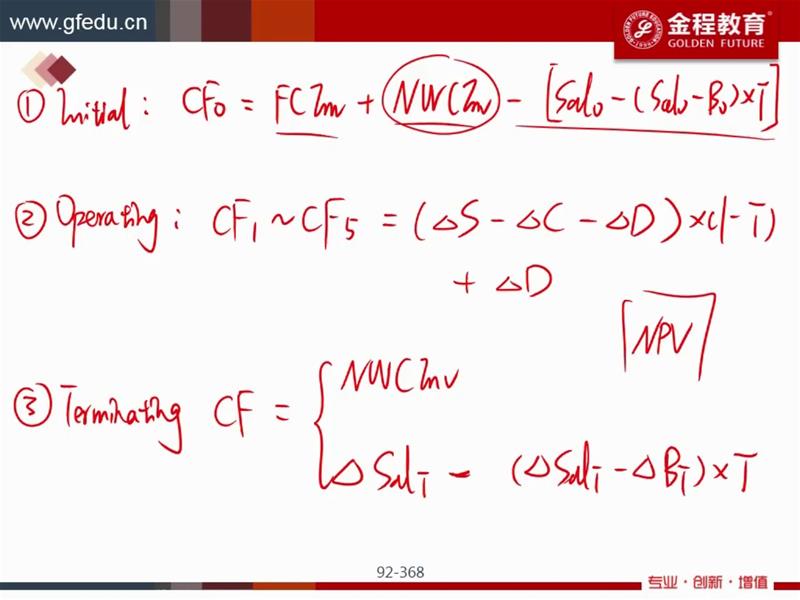 www.gfedu.cn
金程教育
GOLDEN FUTURE
① Initial : CF₀ = FCInv + NWCInv - [Sal₀ - (Sal₀ - B₀) × T]
② Operating : CF₁ ~ CF₅ = (△S - △C - △D) × (1 - T)
+ △D
NPV
③ Terminating CF = { NWCInv
△Sal_T - (△Sal_T - △B_T) × T
92-368
专业·创新·增值